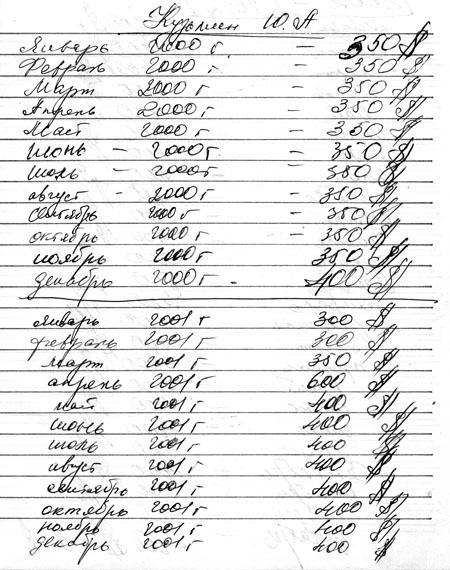 Кузьмин Ю.А
Январь 2000 г – 350 $
Февраль 2000 г – 350 $
Март 2000 г – 350 $
Апрель 2000 г – 350 $
Май 2000 г – 350 $
июнь – 2000 г – 350 $
июль – 2000 г – 350 $
август – 2000 г – 350 $
сентябрь 2000 г – 350 $
октябрь 2000 г – 350 $
ноябрь 2000 г 350 $
декабрь 2000 г. – 400 $
январь 2001 г 300 $
февраль 2001 г 300 $
март 2001 г 350 $
апрель 2001 г 600 $
май 2001 г 400 $
июнь 2001 г 400 $
июль 2001 г 400 $
август 2001 г 400 $
сентябрь 2001 г 400 $
октябрь 2001 г 400 $
ноябрь 2001 г 400 $
декабрь 2001 г. 400 $